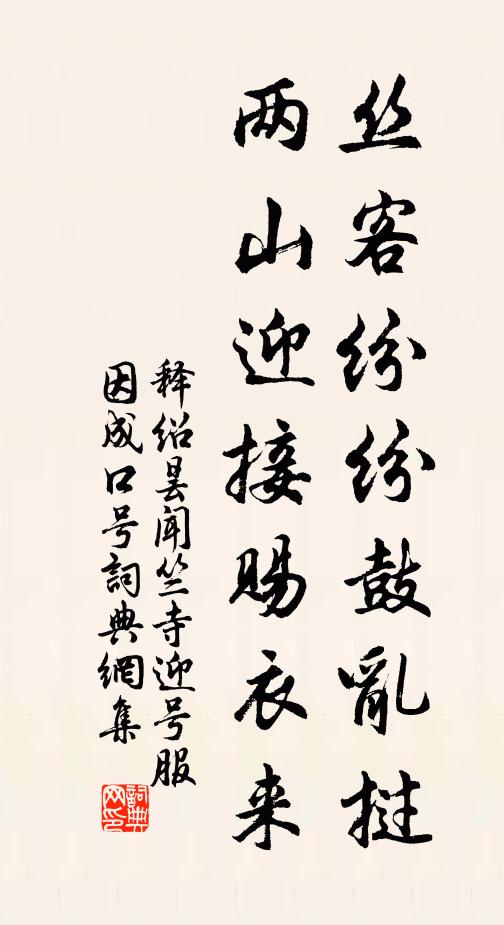 丝客纷纷鼓乱挝
两山迎接赐衣来
释绍昙闻竺寺迎号服
因成口号词典网集
詞典网印